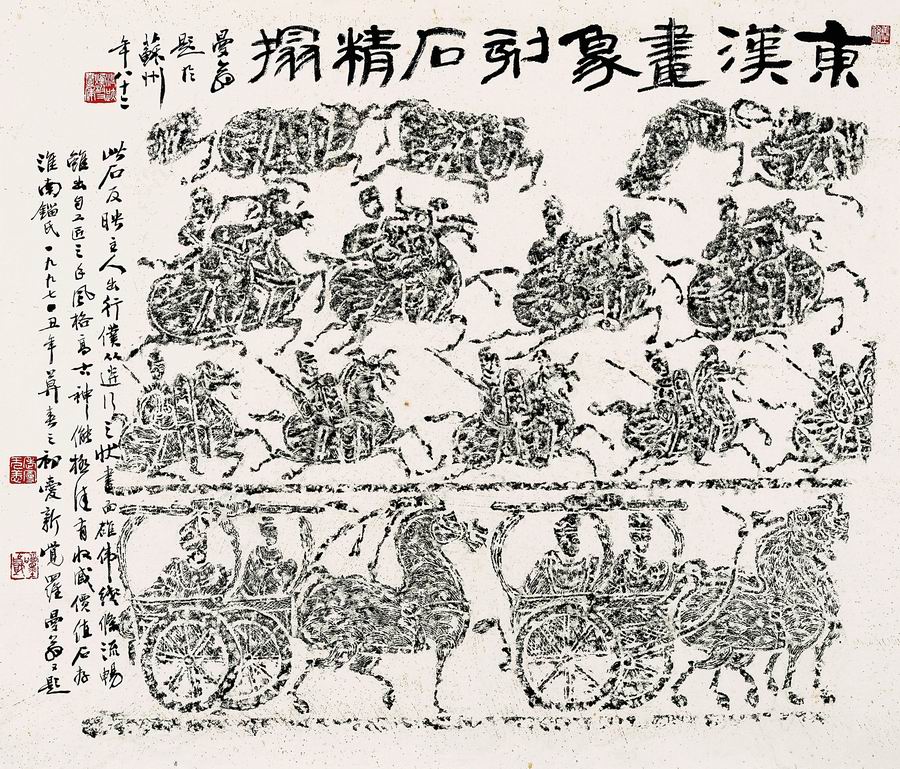 東漢畫象刻石精搨
曼翁
題於
蘇州
年八十二
此石反映主人出行僕從進行之狀畫面雄偉綫條流暢
雖出自工匠之手風格高古神態極佳有收藏價值石存
淮南錙氏一九九七丁丑年算春之初愛新覺羅曼翁又題